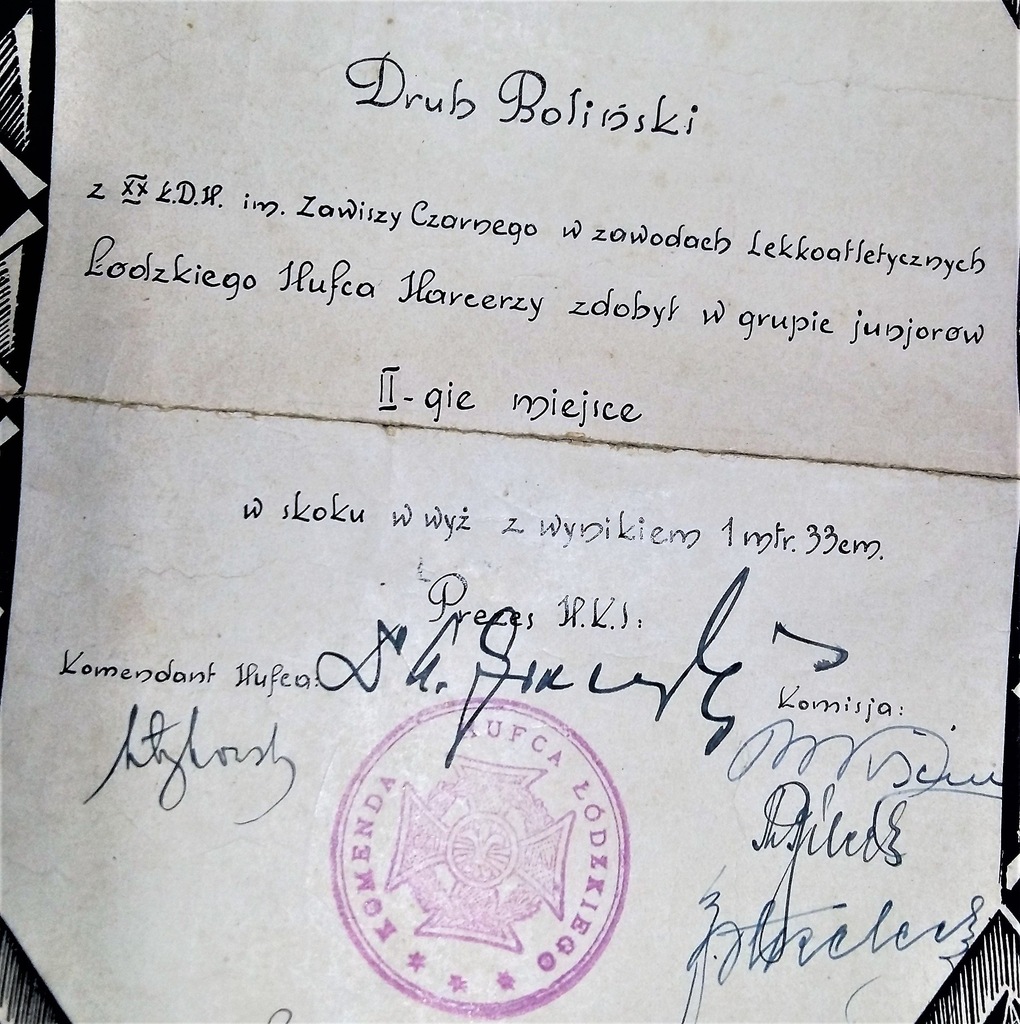 Druh Boliński
z XX Ł.D.H. im. Zawiszy Czarnego w zawodach lekkoatletycznych
Łodzkiego Hufca Harcerzy zdobył w grupie junjorów
II-gie miejsce
w skoku w wyż z wynikiem 1 mtr. 33 cm.
Prezes H.K.S:
Komendant Hufca:
Komisja:
KOMENDA HUFCA ŁÓDZKIEGO